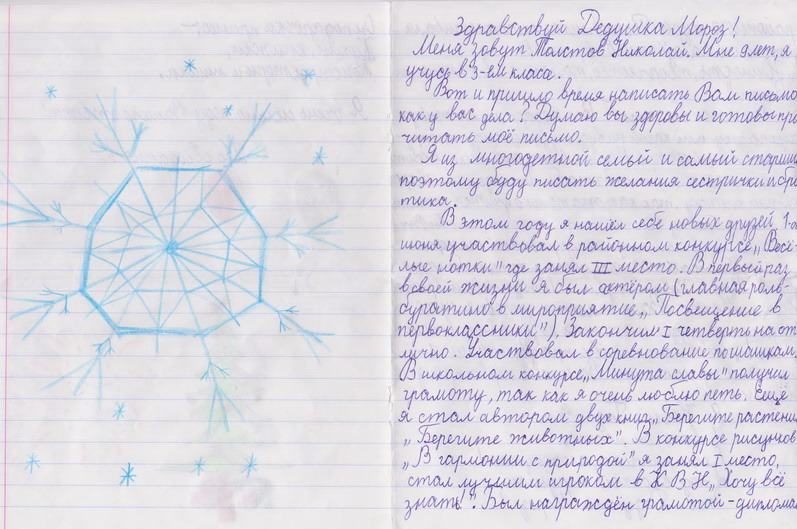 Здравствуй Дедушка Мороз!
Меня зовут Толстов Николай. Мне 9 лет, я
учусь в 3-ем класа.
Вот и пришло время написать Вам письмо
как у вас дела? Думаю вы здоровы и готовы про
читать моё письмо.
Я из многодетной семьй и самый старши
поэтому буду писать желания сестрички и бра
тика.
В этом году я нашёл себе новых друзей, 1-о
июня участвовал в районном конкурсе „Весё-
лые нотки" где занял III место. В первый раз
в своей жизни я был актёром (главная роль-
буратино в мироприятие „Посвещение в
первоклассники"). Закончил I четверть на от
лично. Участвовал в соревнование по шашкам.
В школьном конкурсе „Минута славы" получил
грамоту, так как я очень люблю петь. Ещё
я стал автором двух книг „Берегите растения
„Берегите животных". В конкурсе рисунков
„В гармонии с природой" я занял I место,
стал лучшим игроком в К В Н „Хочу всё
знать!". Был награждён грамотой - диплома